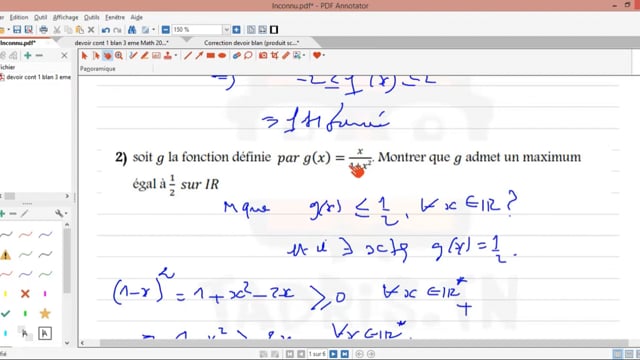 Inconnu.pdf* - PDF Annotator
Edition Affichage Insertion Document Outils Fenêtre Aide
150 %
Inconnu.pdf* × devoir cont 1 blan 3 eme Math 20... × Correction devoir blan (produit sc... ×
Panoramique
devoir cont 1 blan 3 eme
=) -2 ≤ f(x) ≤ 2
=> f est bornée
2) soit g la fonction définie par g(x) = x/(1+x²). Montrer que g admet un maximum
égal à 1/2 sur IR
M que g(x) ≤ 1/2, ∀ x ∈ IR ?
g(x) = 1/2.
(1-x)² = 1 + x² - 2x ≥ 0 ∀ x ∈ IR*+
1 sur 6